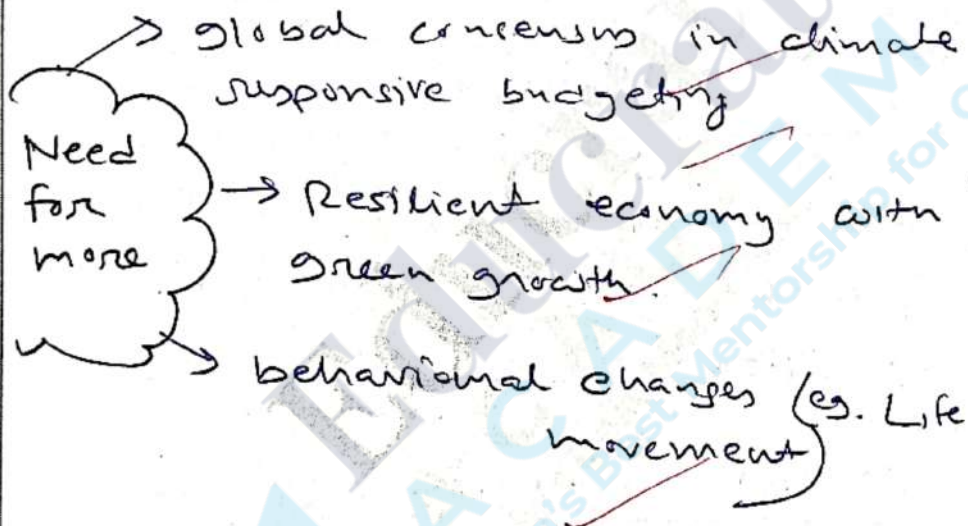 → global consensus in climate
responsive budgeting
Need
for
more
→ Resilient economy with
green growth.
→ behavioural changes (eg. Life
movement)
Educra
ACADEM
's Best Mentorship for C